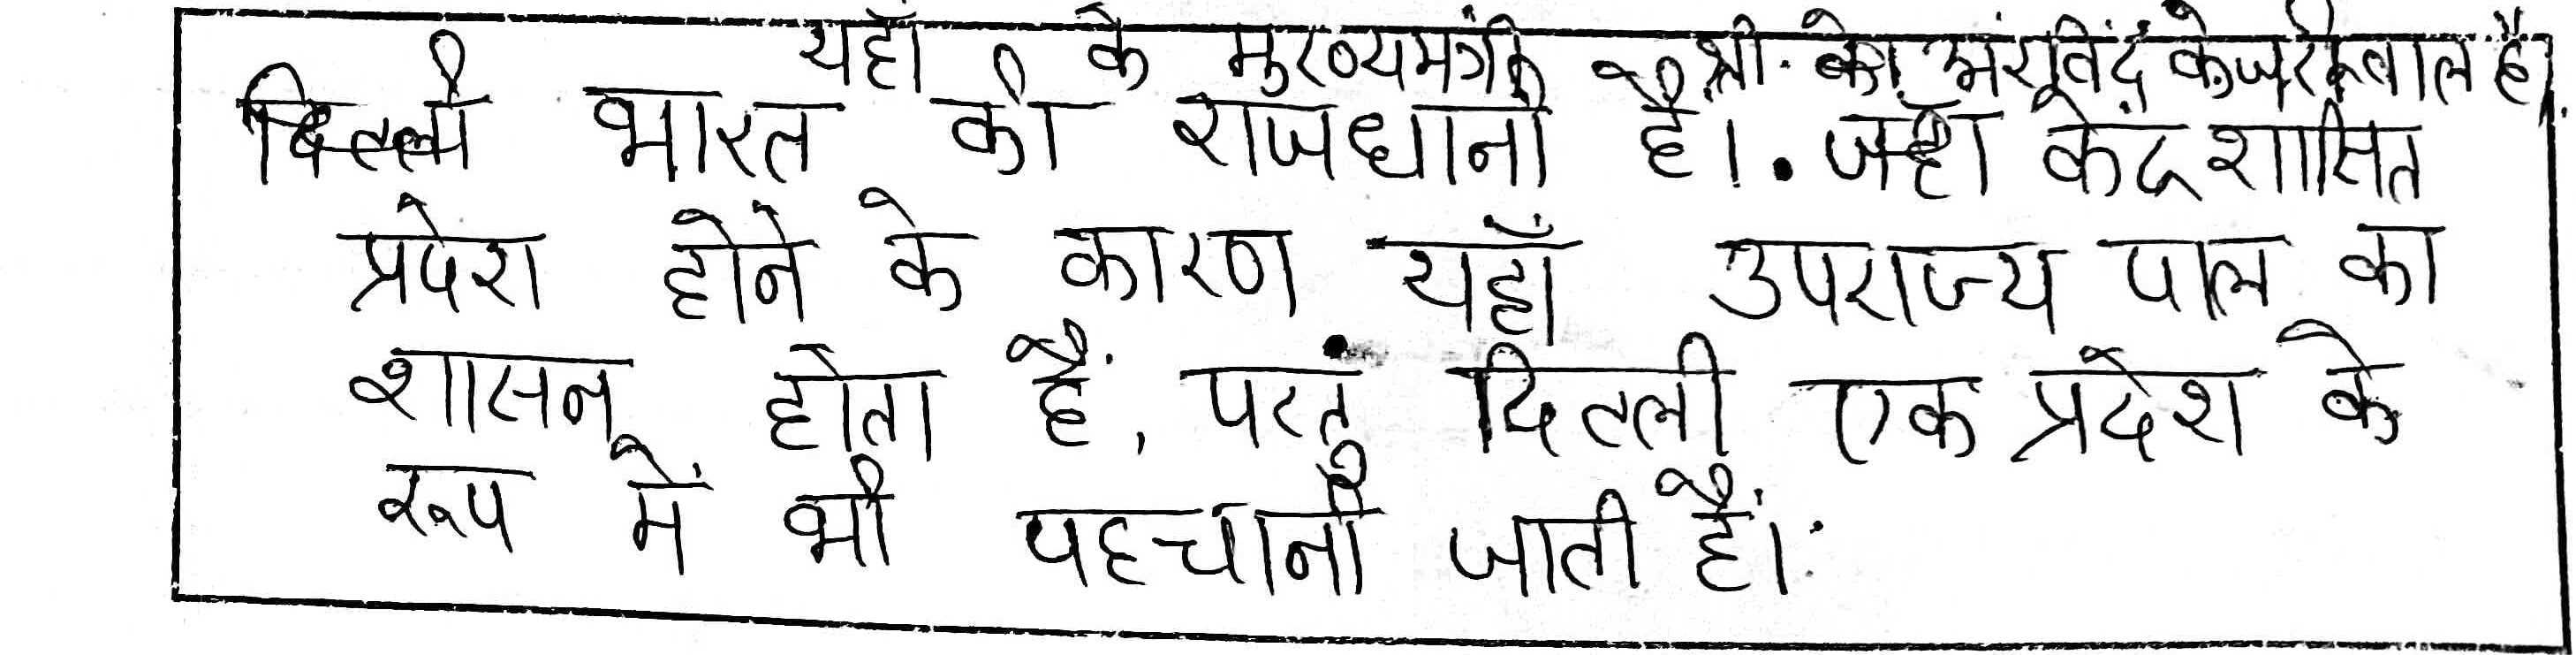 यहाँ के मुख्यमंत्री श्री. अंरविंद केजरीवाल है।
दिल्ली भारत की राजधानी है। जहाँ केंद्र शासित
प्रदेश होने के कारण यहाँ उपराज्य पाल का
शासन होता हैं, परंतु दिल्ली एक प्रदेश के
रूप में भी पहचानी जाती हैं।